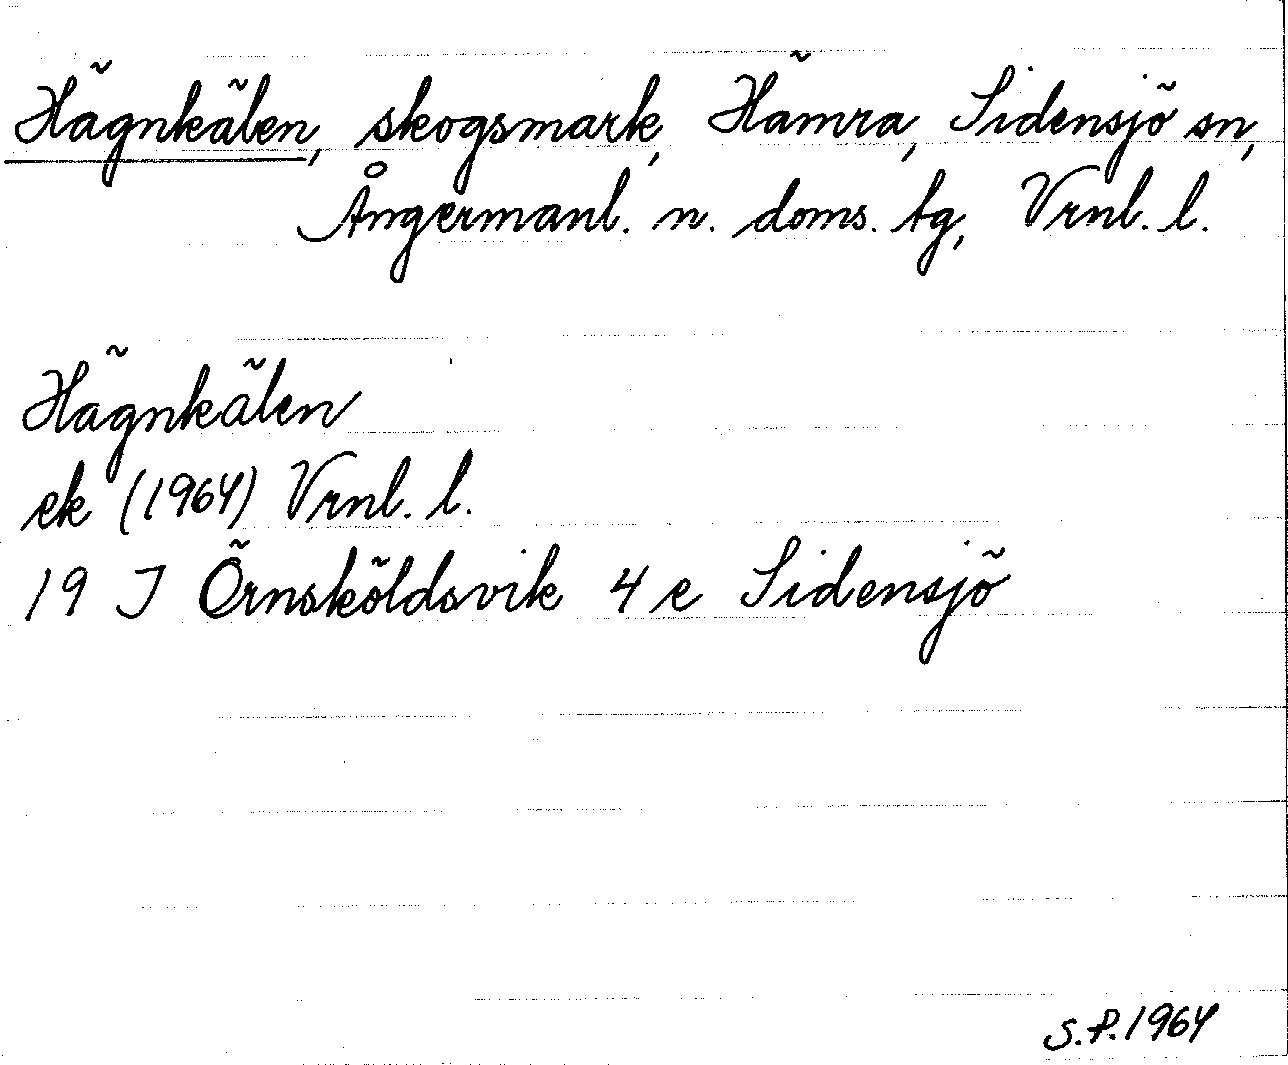 Hägnkälen, skogsmark, Hämra, Sidensjö sn,
Ångermanl. n. doms. tg, Vrnl. l.
Hägnkälen
ek (1964) Vrnl. l.
19 J Örnsköldsvik 4 e Sidensjö
S.P. 1964